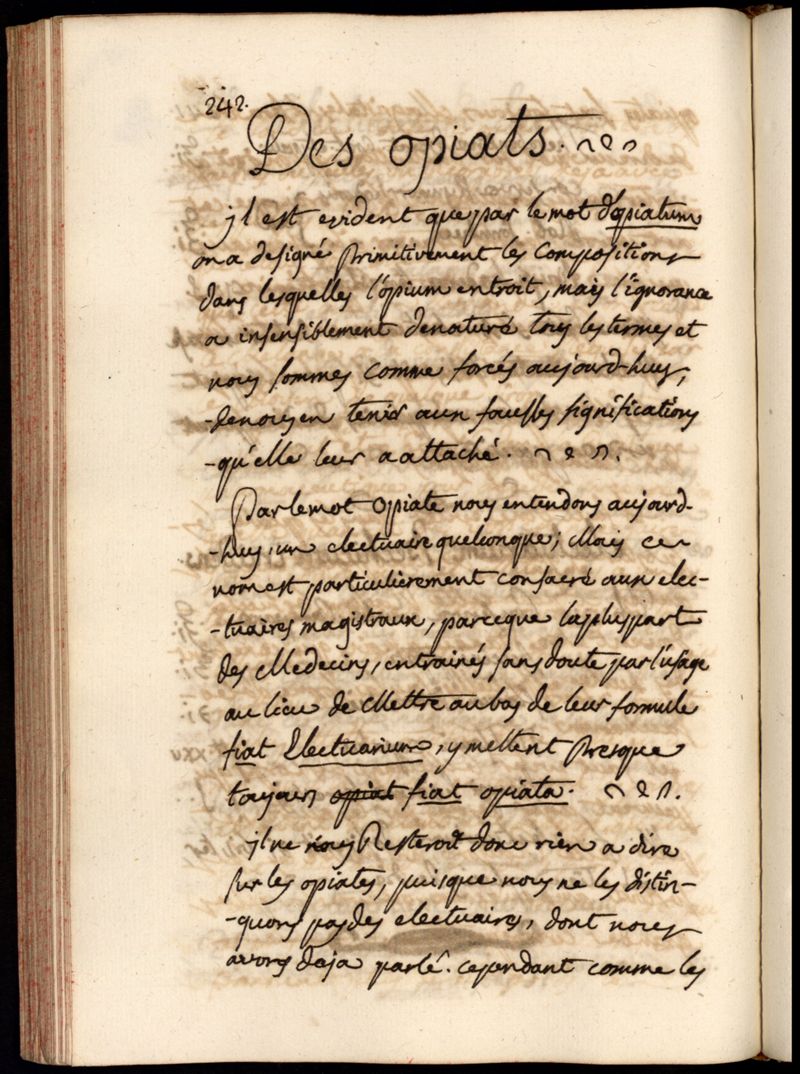 242.
Des opiats.
jl est evident que par le mot d'opiatum
on a designé primitivement les compositions
dans lesquelles l'opium entroit, mais l'ignorance
a insensiblement denaturé tous les termes et
nous sommes comme forcés aujourd-huy,
-denous en tenir aux fausses significations
-qu'elle leur a attaché.
Par le mot opiate nous entendons aujourd-
-huy, un electuaire quelconque; Mais ce
nom est particulierement consacré aux elec-
-tuaires magistraux, parceque la pluspart
des Medecins, entrainés sans doute par l'usage
au lieu de Mettre au bas de leur formule
fiat Electuarium, y mettent presque
toujours opiat fiat opiata.
jl ne nous Resteroit donc rien a dire
sur les opiates, puisque nous ne les distin-
-guons pas des electuaires, dont nous
avons deja parlé. cependant comme les